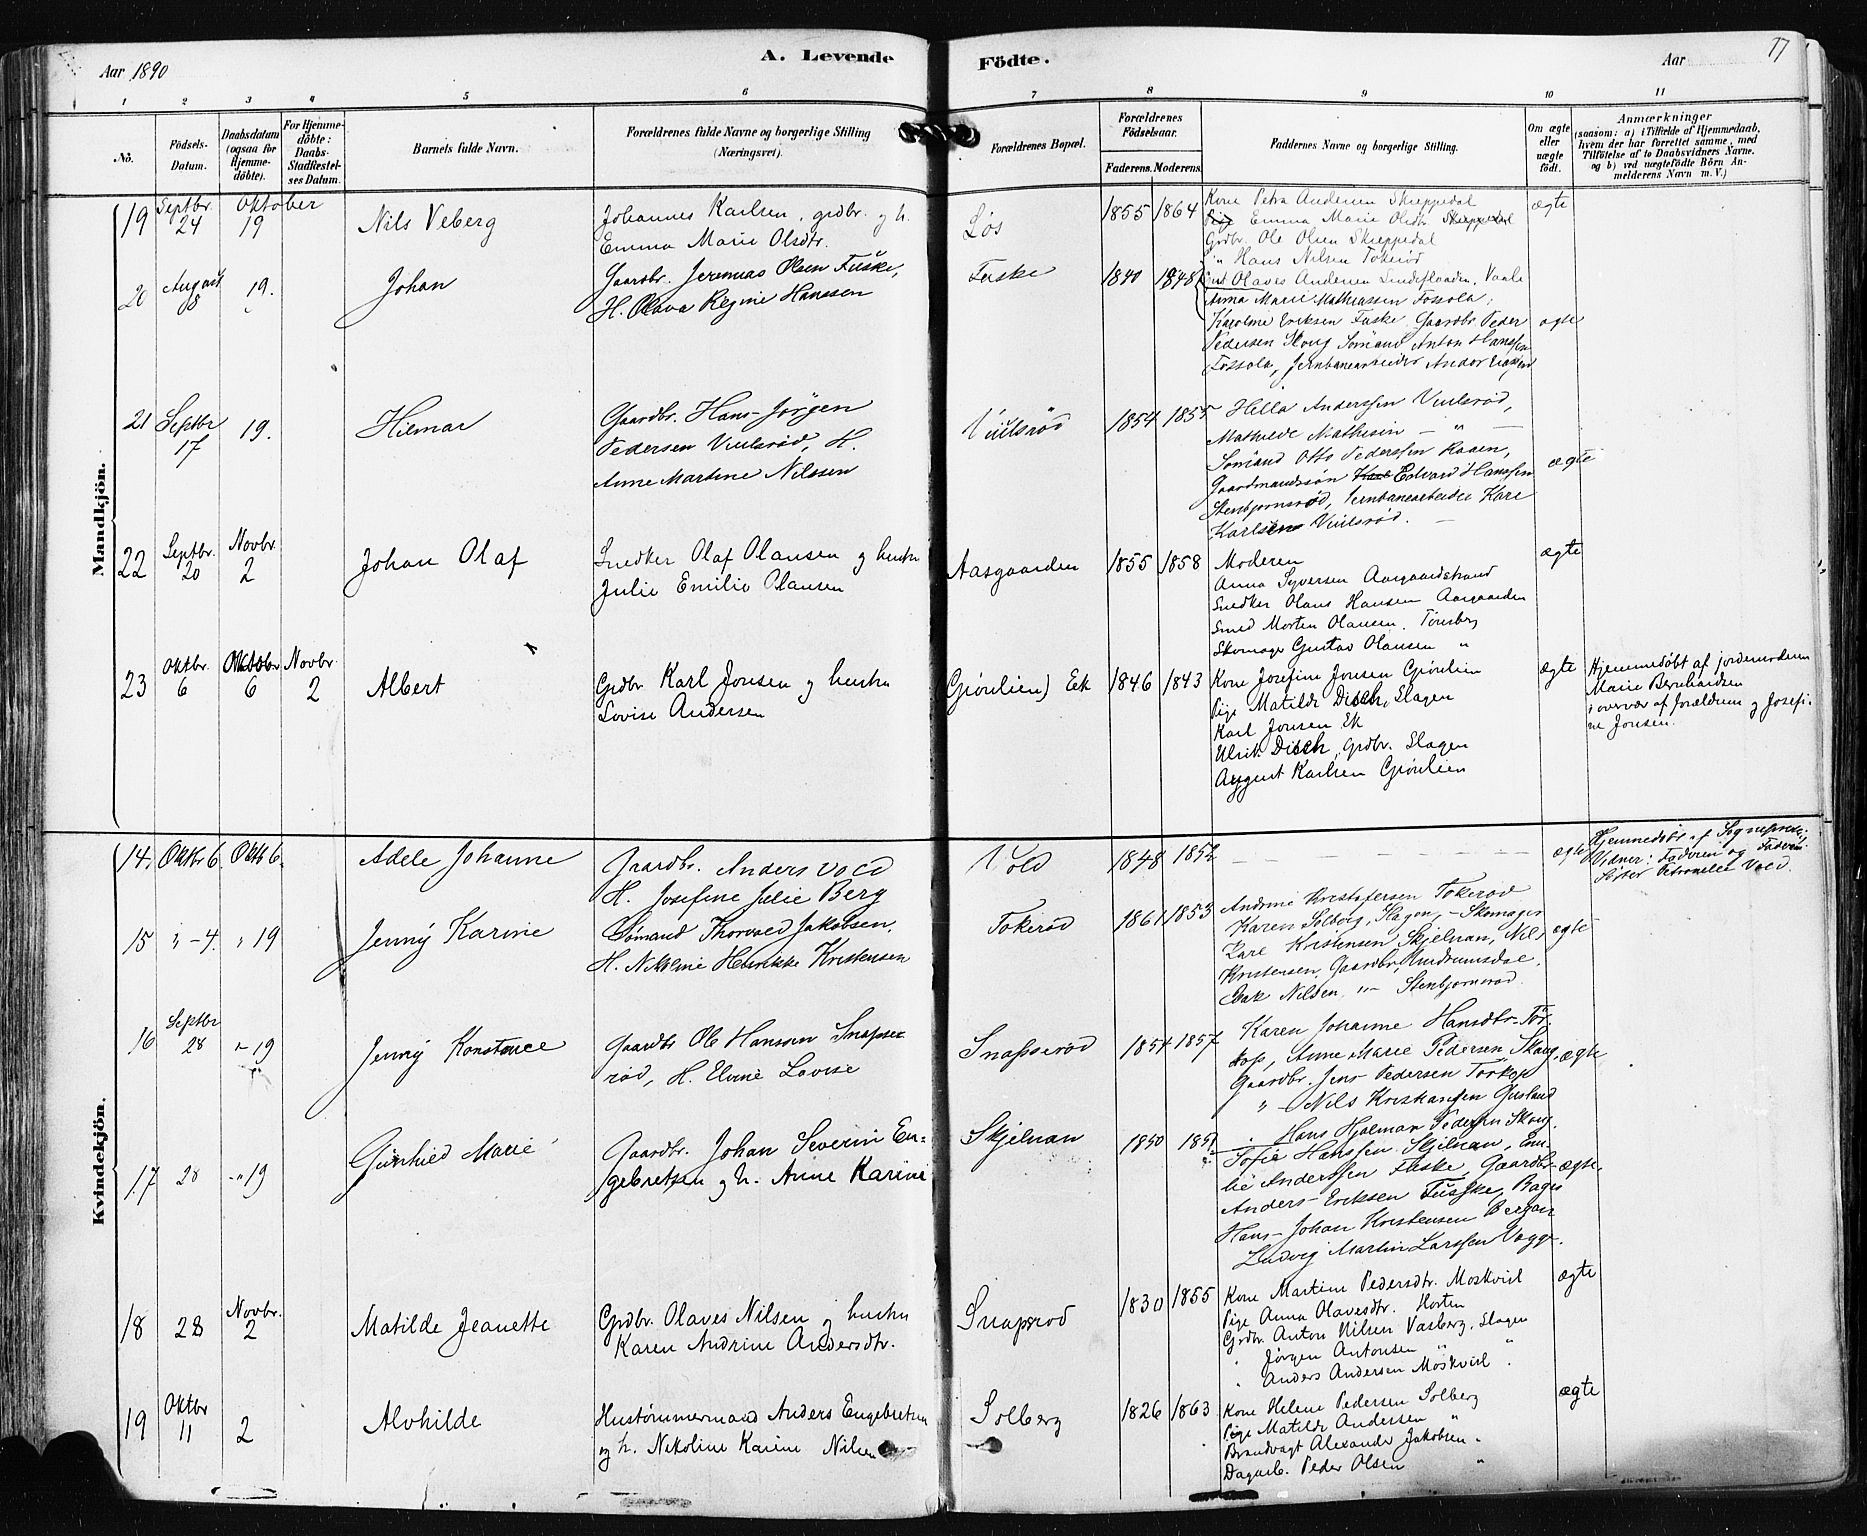 Aar 1890
A. Levende
Födte.
Aar
77
1 2 3 4 5 6 7 8 9 10 11
No.
Födsels-Datum.
Daabsdatum (ogsaa for Hjemme-döbte).
For Hjemme-döbte: Daabs-Stadfæstel-ses Datum.
Barnets fulde Navn.
Forældrenes fulde Navne og borgerlige Stilling (Næringsvei).
Forældrenes Bopæl.
Forældrenes Födselsaar.
Faderens. Moderens.
Faddernes Navne og borgerlige Stilling.
Om ægte eller uægte födt.
Anmærkninger
(saasom: a) i Tilfælde af Hjemmedaab,
hvem der har forrettet samme, med
Tilföielse af to Daabsvidners Navne.
og b) ved uægtefödte Börn An-
melderens Navn m. V.)
Mandkjön.
19 Septbr. 24 Oktober 19 Nils Veberg
Johannes Karlsen, grdbr. og h.
Emma Marie Olsdtr.
Løs 1855 1864
Kone Petra Andersen Skreppedal
Pige Emma Marie Olsdtr. Skreppedal
Grdbr. Ole Olsen Skreppedal
" Hans Nilsen Tokerød
Olaves Andersen
ægte
20 August 8 19. Johan
Gaardbr. Jeremias Olsen Fuske,
H. Olava Regine Hanssen
Fuske 1840 1848
Anna Marie Mathiassen Fossola,
Karoline Eriksen Fuske, Gaardbr. Peder
Pedersen Skoug Sømand Anton Hanssen
Fossola, Jernbanearbeider Andor
ægte
21 Septbr 17 19. Hilmar
Gaardbr. Hans-Jørgen
Pedersen Viulsrød, H.
Anne Martine Nilssen
Viulsrød 1854 1855
Hella Anderssen Viulsrød,
Mathilde Mathisen — " —
Sømand Otto Pederssen Raaen,
Gaardmandssøn Karl Edvard Hanssen
Stenbjornsrød, Jernbanearbeider Kare
Karlsen Viulsrød.
ægte
22 Septbr. 20 Novbr. 2 Johan Olaf
Snedker Olaf Olausen og hustru
Julie Emilie Olausen
Aasgaarden 1855 1858
Moderen
Anna Syversen Aasgaardstrand
Snedker Olaus Hansen Aasgaarden
Smed Morten Olausen, Tønsberg
Skomager Gustav Olausen "
ægte
23 Oktbr. 6 Oktobr 6 Novbr. 2 Albert
Grdbr Karl Jonsen og hustru
Lovise Andersen
Grönlien) Eek 1846 1843
Kone Josefine Jonsen Grönlien
Pige Matilde Disch, Slagen
Karl Jonsen Ek
Ulrik Disch, Grdbr. Slagen
August Karlsen Grönlien
ægte
Hjemmedøbt af jordemoderen
Marie Bernhardsen
i overvær af Forældrene og Josefi-
ne Jonsen.
Kvindekjön.
14. Oktbr 6. Oktb 6. Adele Johanne
Gaardbr. Anders Vold
H. Josefine Julie Berg
Vold 1848 1852 — — — — ægte
Hjemmedøbt af Sognepræst.
Vidner: Faderen og Faderens
Sister Petronelle Vold.
15 " – 4. " 19 Jenny Karine
Sømand Thorvald Jakobsen,
H. Nikoline Henrikke Kristensen
Tokerød 1861 1853
Andrine Kristofersen Tokerød
Karen Solberg, Slagen, – Skomager
Karl Kristensen Skjelnan, Nils
Kristensen, Gaardbr, Undrumsdal.
Isak Nilsen, "– Stenbjornrød.
ægte
16 Septbr 28 "– 19 Jenny Konstance
Gaardbr Ole Hanssen Snapse-
rød, H. Elvine Lovise
Snapserød 1854 1857
Karen Johanne Hansdtr. Tör-
kop, Anne Marie Pedersen Skoug,
Gaardbr. Jens Pedersen Torkop
" – Nils Kristiansen Gusland
" Hans Hjalmar Pedersen Skoug.
ægte
17 28 –" 19 Gunhild Marie
Gaardbr. Johan Severin En-
gebretsen og h. Anne Karine
Skjelnan 1850 1851
Sofie Hanssen Skjelnan, Emi-
lie Anderssen Fuske, Gaardbr.
Anders Eriksen Fusske, Bager
Hans-Johan Kristensen Bergan
Ludvig Martin Larssen
ægte.
18 28 Novbr. 2 Matilde Jeanette
Grdbr. Olaves Nilsen og hustru
Karen Andrine Andersdtr.
Snapsrød 1830 1855
Kone Martine Pedersdtr. Moskvil
Pige Anna Olavesdtr. Horten
Grdbr. Anton Nilsen Vasberg, Slagen
" Jørgen Antonsen " "
" Anders Andersen Moskvil.
ægte
19 Oktbr 11 2 Alvhilde
Hustømmermand Anders Engebretsen
og h. Nikoline Karine Nilsen
Solberg 1826 1863
Kone Helene Pedersen Solberg
Pige Matilde Andersen "
Brandvagt Alexander Jakobsen "
Dagarb. Peder Olsen "
ægte